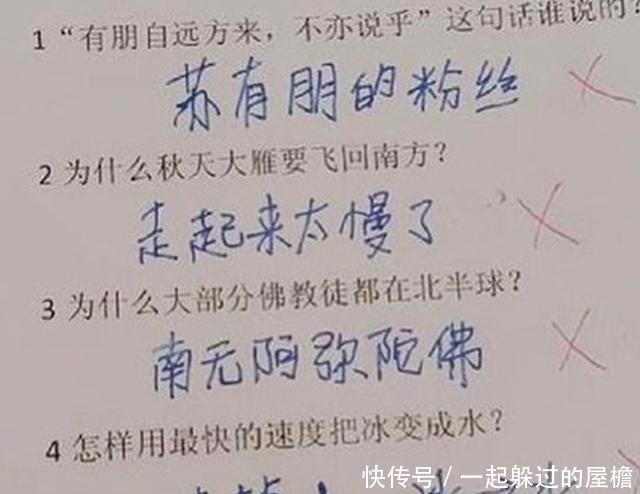 1 “有朋自远方来，不亦说乎”这句话谁说的？
苏有朋的粉丝
2 为什么秋天大雁要飞回南方？
走起来太慢了
3 为什么大部分佛教徒都在北半球？
南无阿弥陀佛
4 怎样用最快的速度把冰变成水？
快传号／一起躲过的屋檐